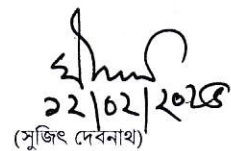 ১২/০২/২০২৫
(সুজিৎ দেবনাথ)